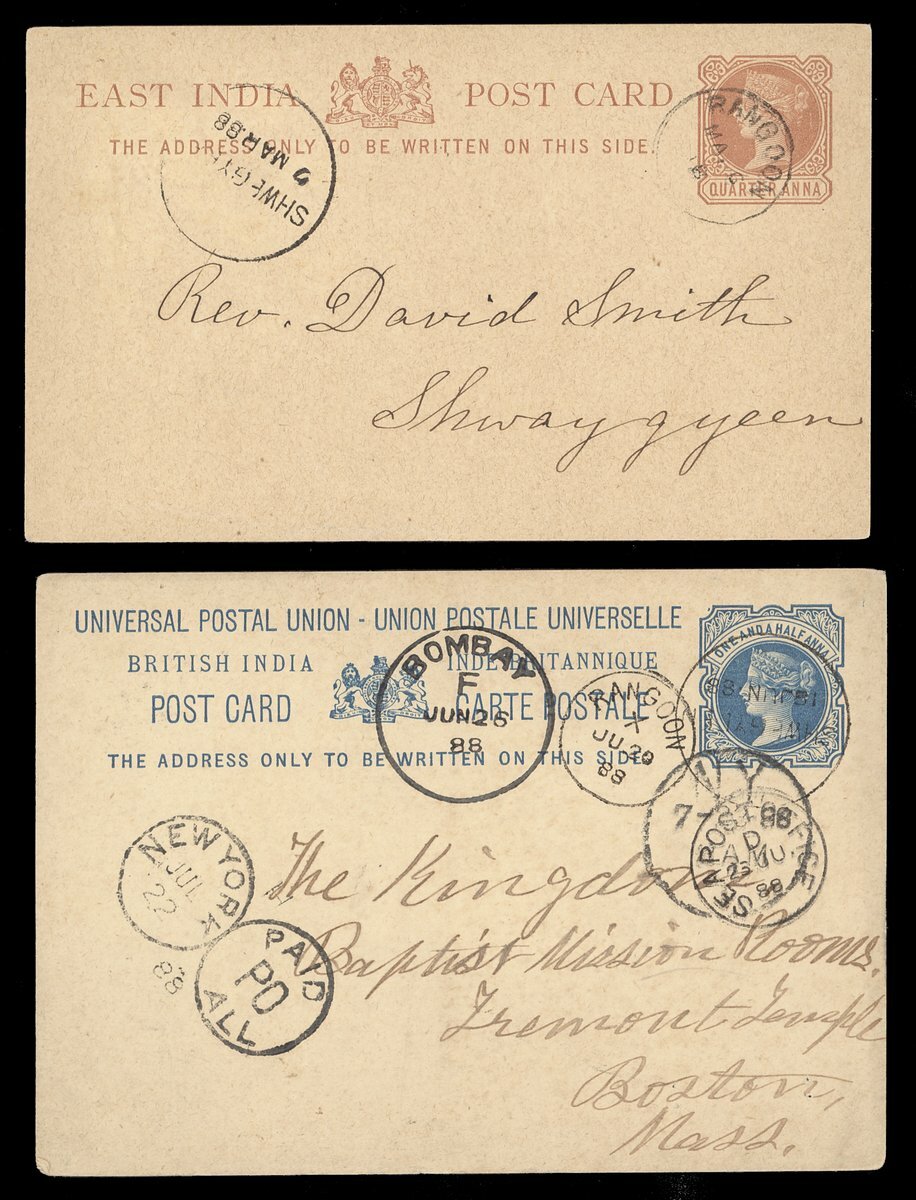 EAST INDIA POST CARD
THE ADDRESS ONLY TO BE WRITTEN ON THIS SIDE.
QUARTER ANNA
RANGOON
SHWEGYI
MAR.88
Rev. David Smith
Shwaygyeen
UNIVERSAL POSTAL UNION - UNION POSTALE UNIVERSELLE
BRITISH INDIA INDE BRITANNIQUE
POST CARD CARTE POSTALE
THE ADDRESS ONLY TO BE WRITTEN ON THIS SIDE
ONE AND A HALF ANNA
BOMBAY
F
JUN 26
88
RANGOON
X
JU 20
88
NY
SEA POST OFFICE
D
88
NEW YORK
JUL
22
88
PAID
PO
ALL
The Kingdom
Baptist Mission Rooms.
Tremont Temple
Boston,
Mass.